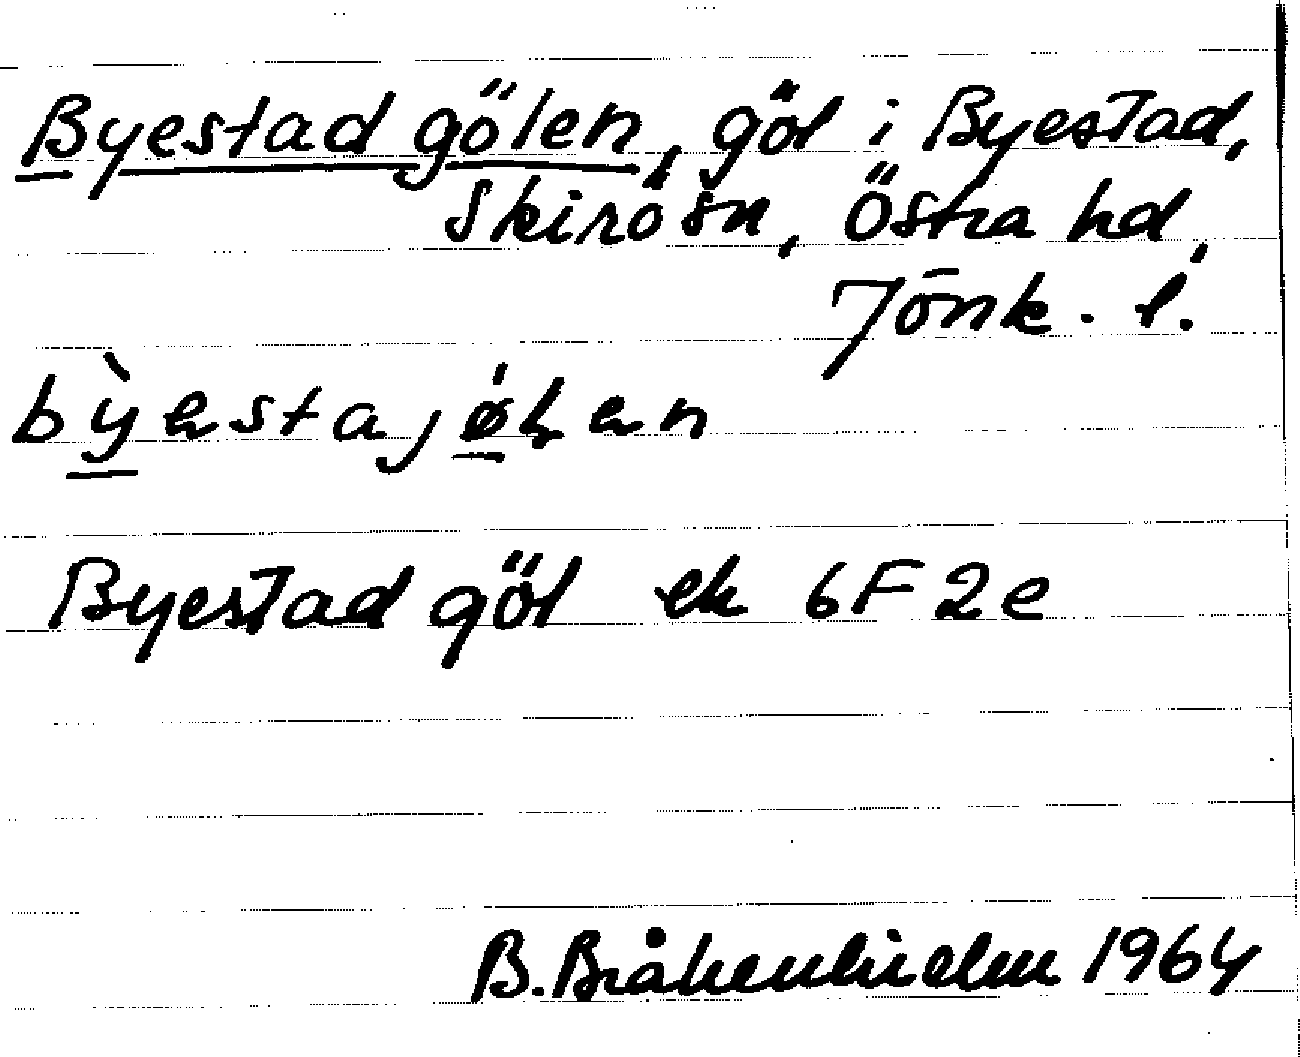 Byestad gölen, göl i Byestad,
Skirö sn, Östra hd,
Jönk. l.
Byestad göl ek 6F2e
B. Bråkenhielm 1964